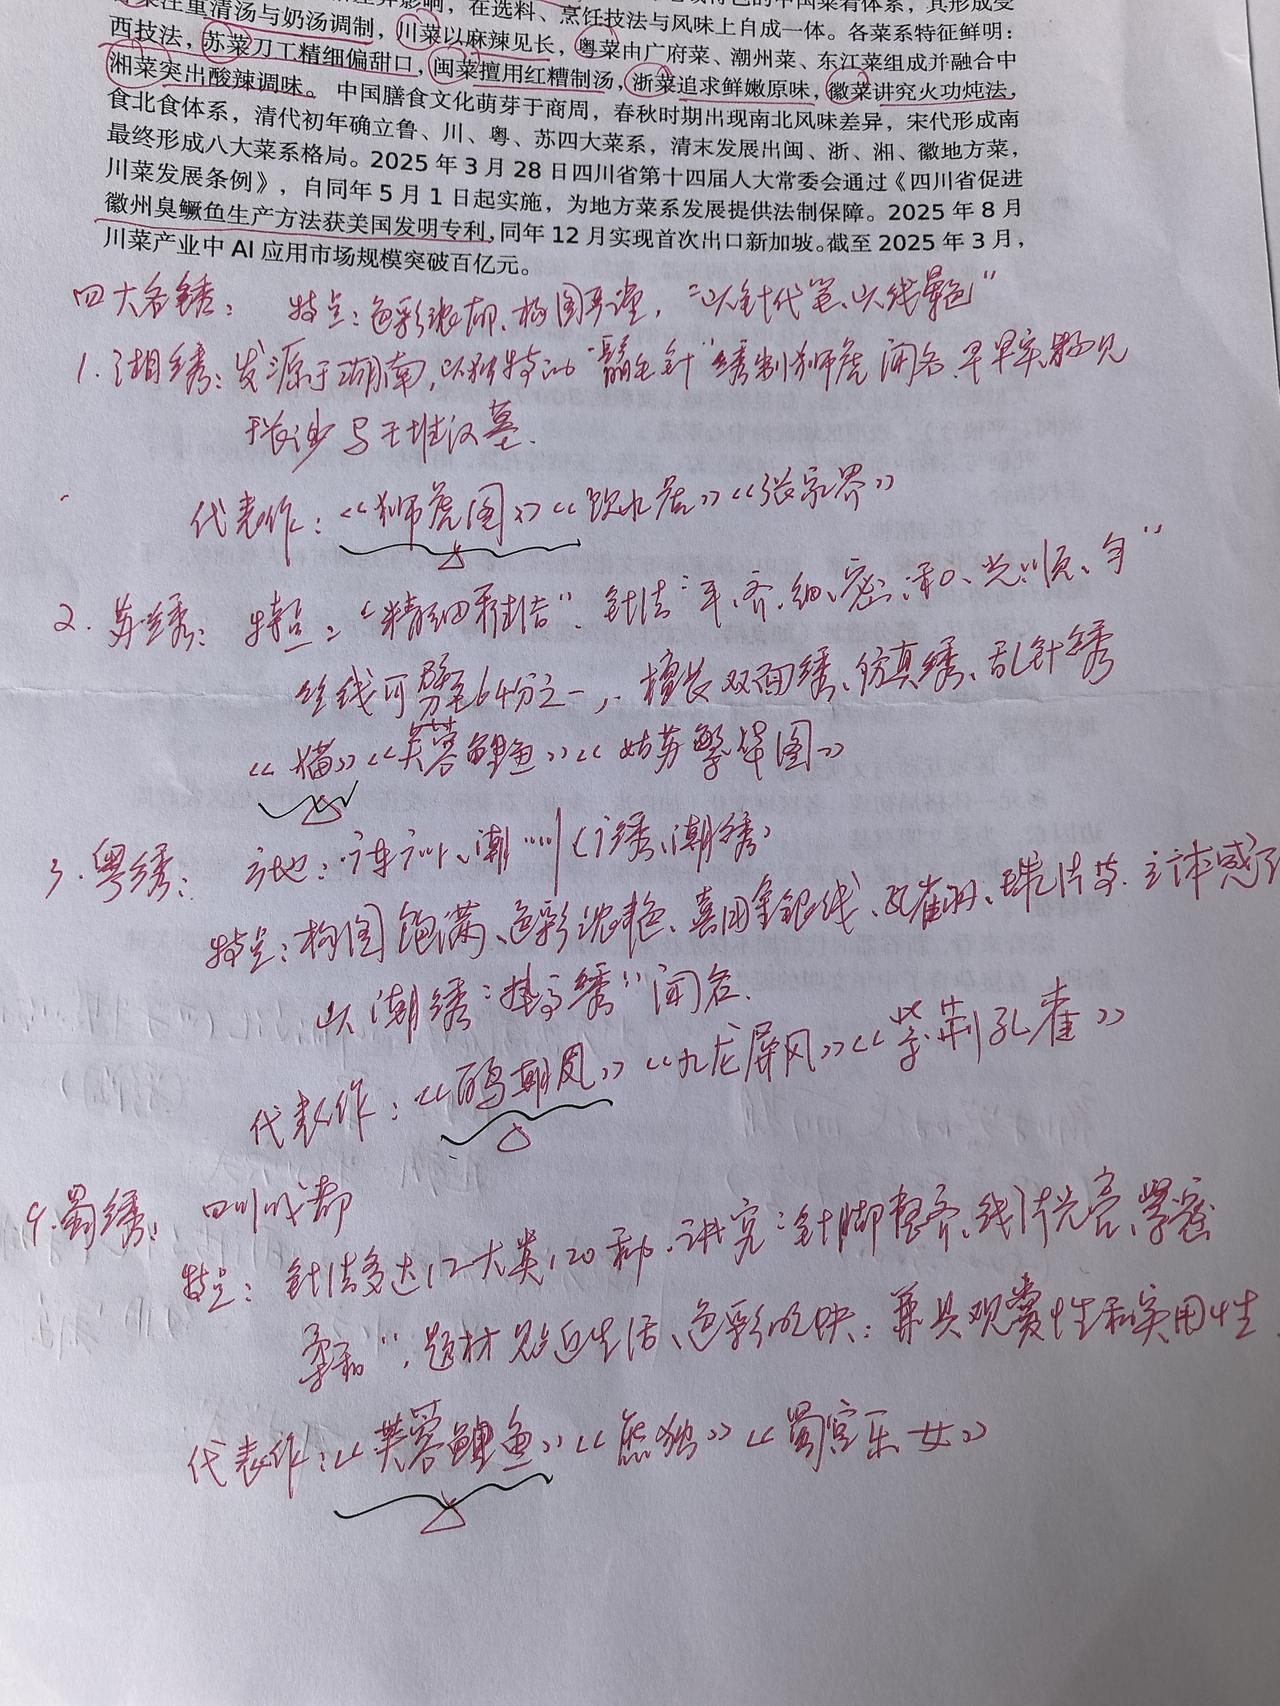 菜注重清汤与奶汤调制，川菜以麻辣见长，粤菜由广府菜、潮州菜、东江菜组成并融合中
西技法，苏菜刀工精细偏甜口，闽菜擅用红糟制汤，浙菜追求鲜嫩原味，徽菜讲究火功炖法，
湘菜突出酸辣调味。中国膳食文化萌芽于商周，春秋时期出现南北风味差异，宋代形成南
食北食体系，清代初年确立鲁、川、粤、苏四大菜系，清末发展出闽、浙、湘、徽地方菜，
最终形成八大菜系格局。2025 年 3 月 28 日四川省第十四届人大常委会通过《四川省促进
川菜发展条例》，自同年 5 月 1 日起实施，为地方菜系发展提供法制保障。2025 年 8 月
徽州臭鳜鱼生产方法获美国发明专利，同年 12 月实现首次出口新加坡。截至 2025 年 3 月，
川菜产业中 AI 应用市场规模突破百亿元。
四大名绣： 特点：色彩浓郁、构图严谨，“以针代笔、以线晕色”
1. 湘绣：发源于湖南，以独特的“鬅毛针”绣制狮虎闻名，早年实物见
于长沙马王堆汉墓.
代表作：《狮虎图》《饮水虎》《张家界》
2. 苏绣： 特点：“精细雅洁”. 针法“平、齐、细、密、和、光、顺、匀”
丝线可劈至64分之一，擅长双面绣、仿真绣、乱针绣
《猫》《芙蓉鲤鱼》《姑苏繁华图》
3. 粤绣： 产地：广东广州、潮州（广绣、潮绣）
特点：构图饱满、色彩浓艳、喜用金银线、孔雀羽、珠片等. 立体感
以潮绣“垫高绣”闻名.
代表作：《百鸟朝凤》《九龙屏风》《紫荆孔雀》
4. 蜀绣： 四川成都
特点： 针法多达12大类120种. 讲究“针脚整齐、线片光亮、紧密
柔和”, 题材贴近生活、色彩明快；兼具观赏性和实用性.
代表作：《芙蓉鲤鱼》《熊猫》《蜀宫乐女》